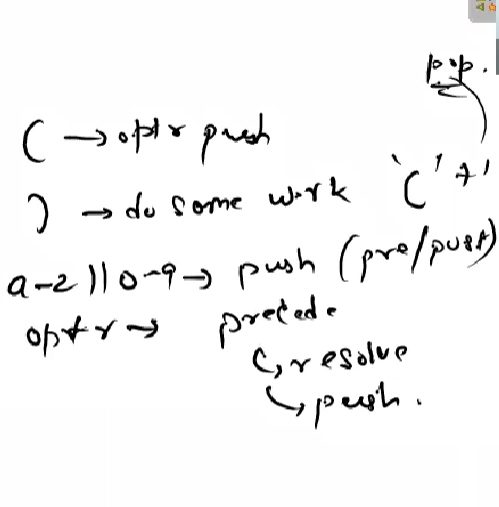 pop.
( → optr push
) → do some work '(' '+'
a-z || 0-9 → push (pre/post)
optr → precede
↳ resolve
↳ push.